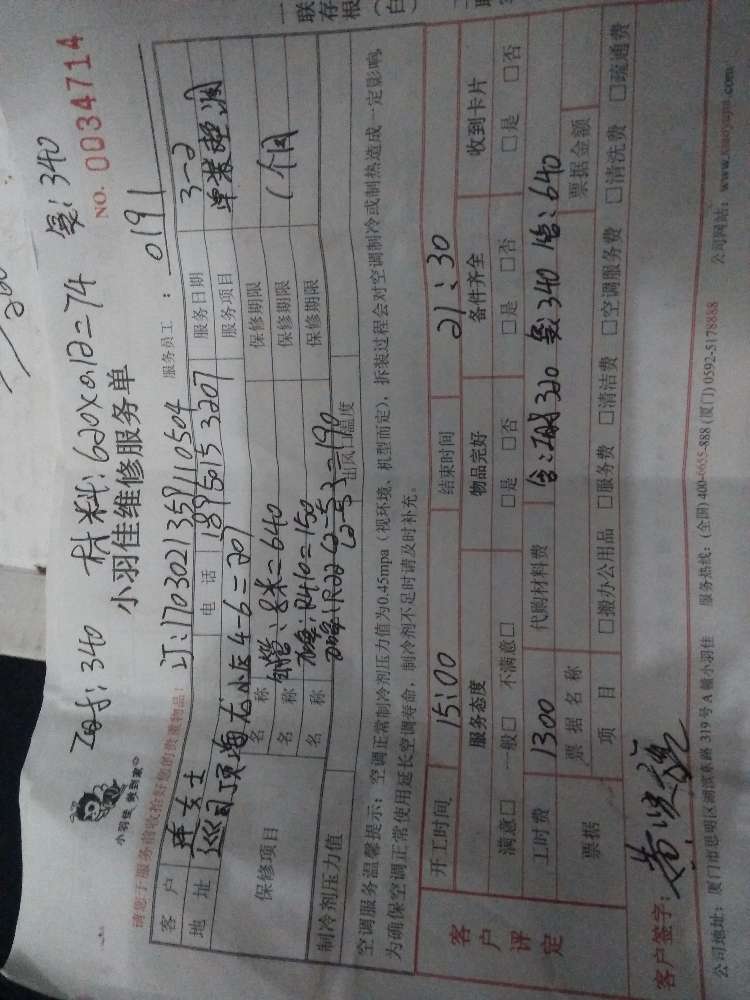 百姓: 340 材料: 620×0.12=74 复: 340
小羽佳 做到家
小羽佳维修服务单
NO. 0034714
请您于服务前收拾好您的贵重物品!
订:1703021359110504
服务员工: 0191
客户 女士 电话 18950153207 服务日期 3-2
地址 4-6=201 服务项目 单装空调
保修项目 名称 铜管:8米=640 保修期限 1个月
名称 R410=150 保修期限
名称 =190 保修期限
制冷剂压力值 出风口温度
空调服务温馨提示: 空调正常制冷剂压力值为0.45mpa(视环境、机型而定), 拆装过程会对空调制冷或制热造成一定影响,
为确保空调正常使用延长空调寿命, 制冷剂不足时请及时补充。
客户评定
开工时间 15:00 结束时间 21:30
服务态度 物品完好 备件齐全 收到卡片
满意□ 一般□ 不满意□ □是 □否 □是 □否 □是 □否
工时费 1300 代购材料费 320 340 640
票据 票据名称 票据金额
项目 □搬办公用品 □服务费 □清洁费 □空调服务费 □清洗费 □疏通费
客户签字:
公司地址: 厦门市思明区湖滨东路319号A幢小羽佳 服务热线: (全国) 400-6655-888 (厦门) 0592-5178888 公司网站: www.xiaoyujia.com
一联存根(白)